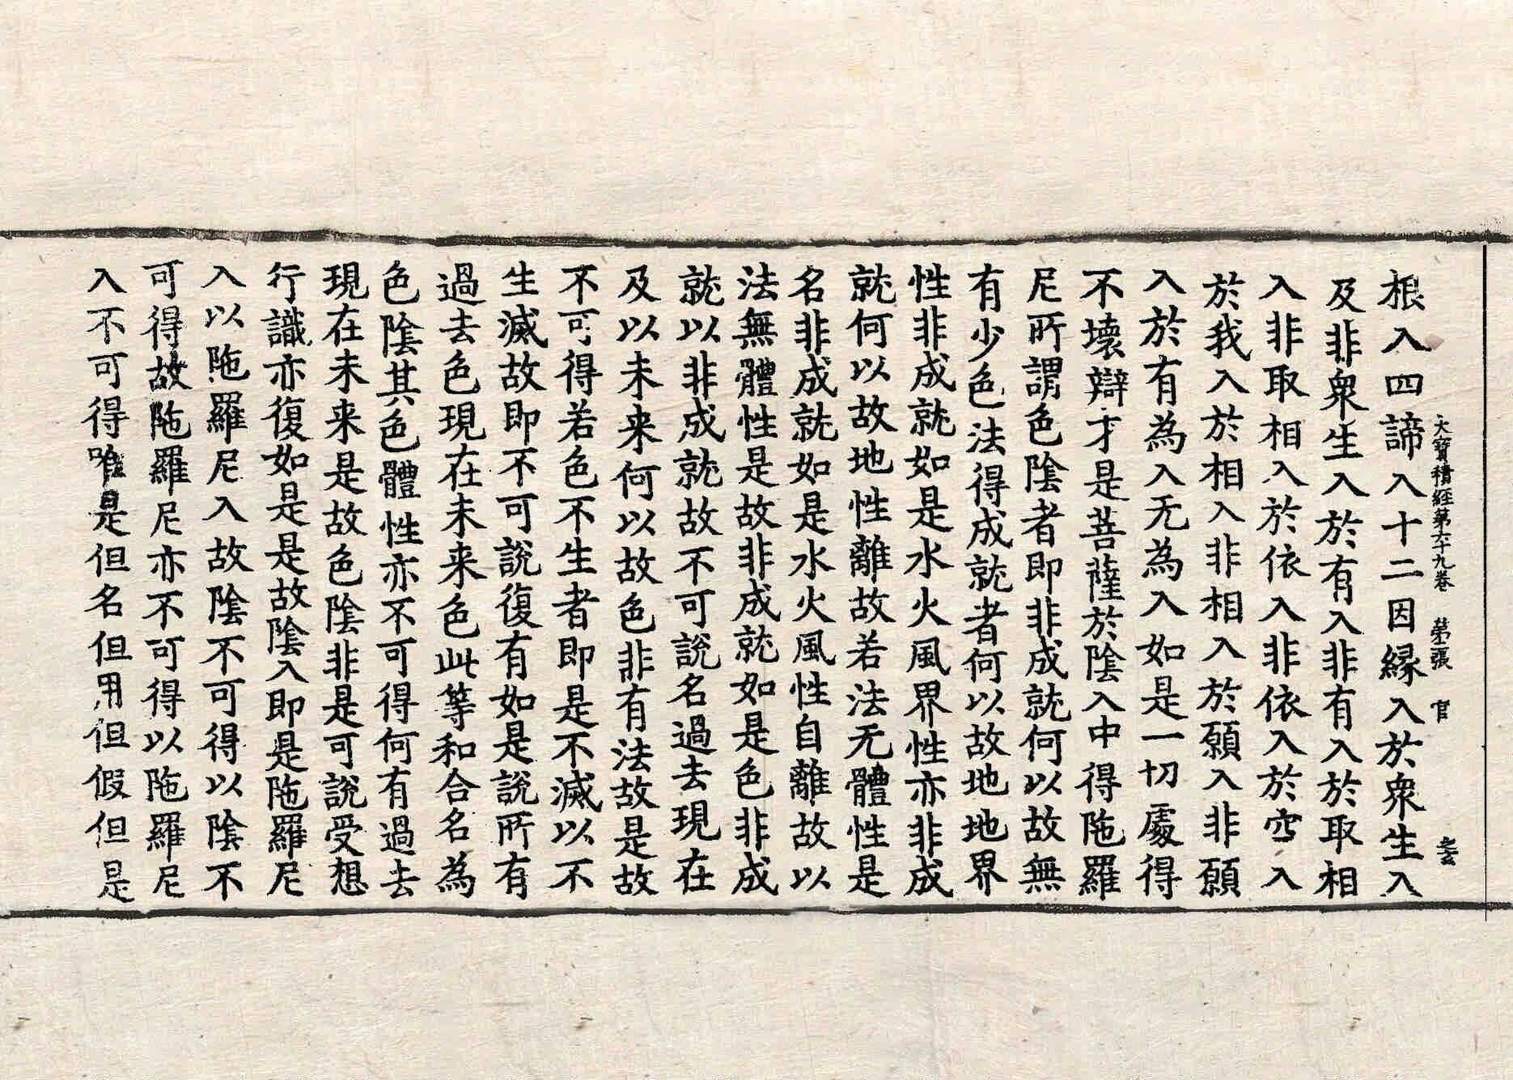 大寶積經第六十九卷 第三張 官
根入四諦入十二因緣入於衆生入
及非衆生入於有入非有入於取相
入非取相入於依入非依入於空入
於我入於相入非相入於願入非願
入於有為入无為入如是一切處得
不壞辯才是菩薩於陰入中得陁羅
尼所謂色陰者即非成就何以故無
有少色法得成就者何以故地地界
性非成就如是水火風界性亦非成
就何以故地性離故若法无體性是
名非成就如是水火風性自離故以
法無體性是故非成就如是色非成
就以非成就故不可說名過去現在
及以未来何以故色非有法故是故
不可得若色不生者即是不滅以不
生滅故即不可說復有如是說所有
過去色現在未来色此等和合名為
色陰其色體性亦不可得何有過去
現在未来是故色陰非是可說受想
行識亦復如是是故陰入即是陁羅尼
入以陁羅尼入故陰不可得以陰不
可得故陁羅尼亦不可得以陁羅尼
入不可得唯是但名但用但假但是